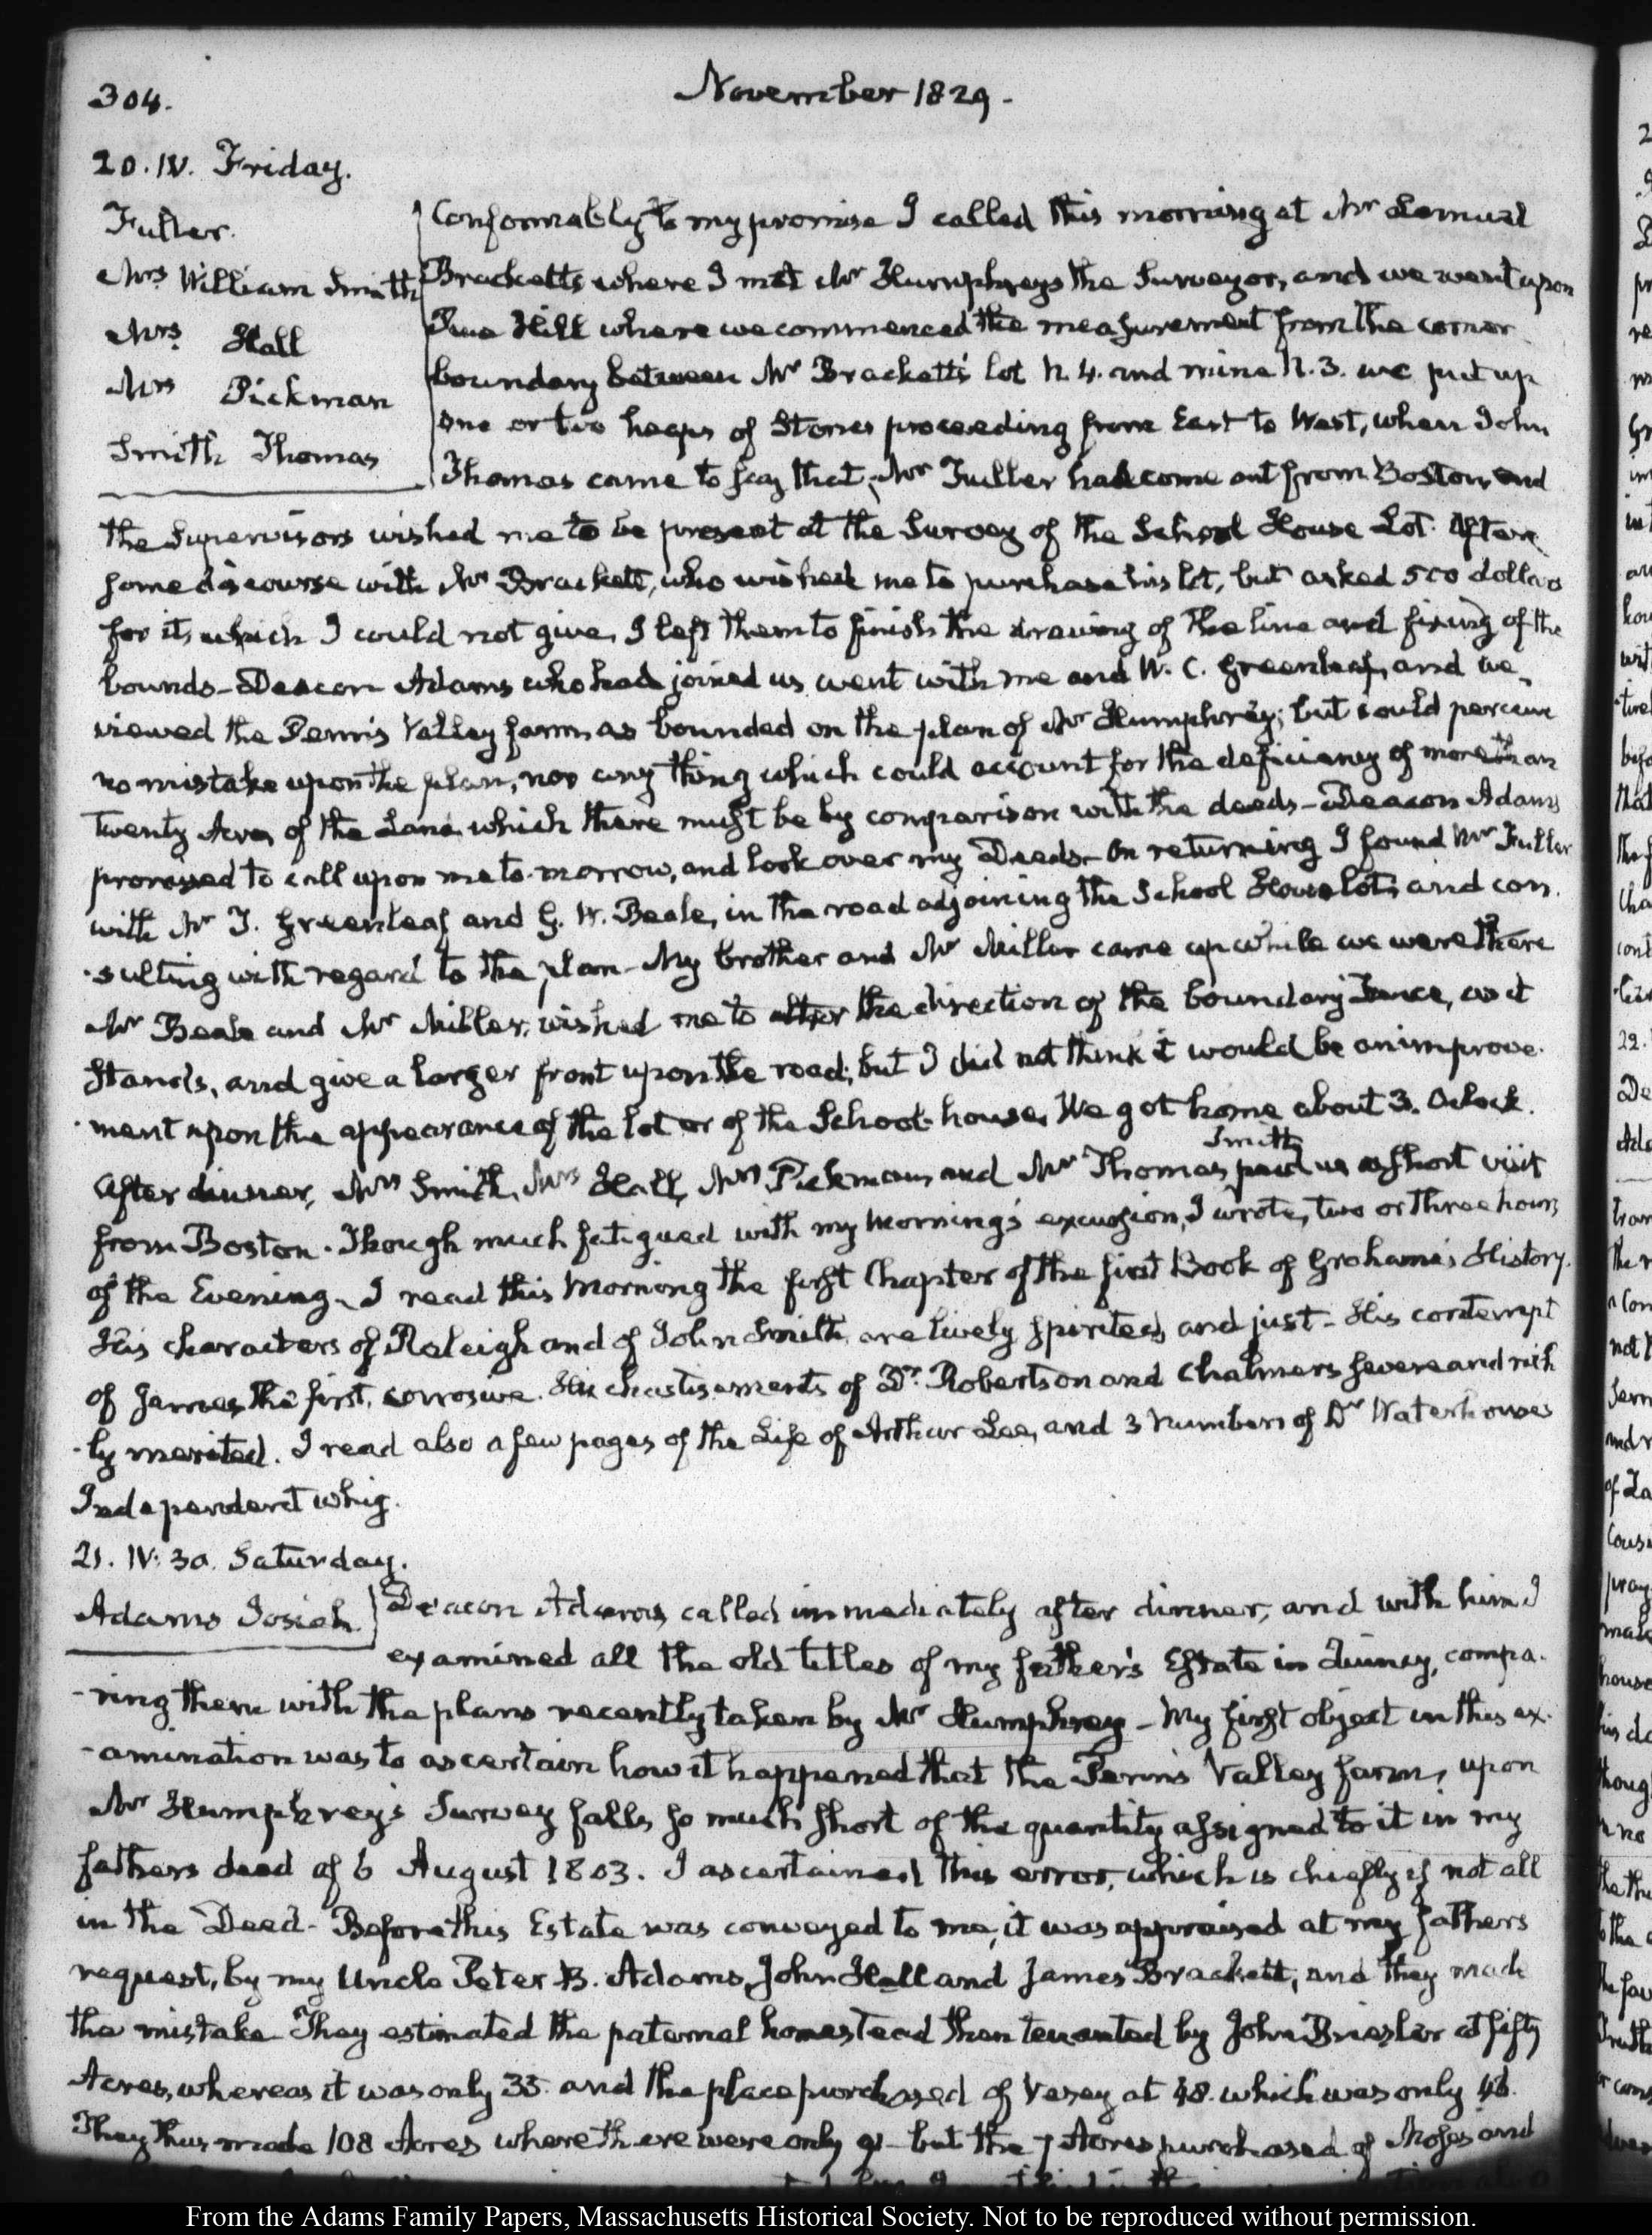 304.
November 1829.
20. IV. Friday.
Fuller.
Mrs William Smith
Mrs Hall
Mrs Pickman
Smith Thomas
Conformably to my promise I called this morning at Mr Lemuel
Bracketts where I met Mr Humphreys the Surveyor, and we went upon
Hill where we commenced the measurement from the corner
boundary between Mr Brackett's lot N. 4. and mine N. 3. we put up
one or two heaps of Stones proceeding from East to West, when John
Thomas came to say that Mr Fuller had come out from Boston, and
the Supervisors wished me to be present at the Survey of the School House Lot. After
some discourse with Mr Brackett, who wished me to purchase his lot, but asked 500 dollars
for it, which I could not give, I left them to finish the drawing of the line and fixing of the
bounds - Deacon Adams who had joined us went with me and W. C. Greenleaf, and we
viewed the Penn's Valley farm, as bounded on the plan of Mr Humphrey; but could perceive
no mistake upon the plan, nor any thing which could account for the deficiency of more than
twenty Acres of the Land which there must be by comparison with the deeds - Deacon Adams
promised to call upon me to-morrow, and look over my Deeds - On returning I found Mr Fuller
with Mr T. Greenleaf and G. W. Beale, in the road adjoining the School House lot; and con-
-sulting with regard to the plan - My brother and Mr Miller came up while we were there
Mr Beale and Mr Miller, wished me to alter the direction of the boundary fence, as it
stands, and give a larger front upon the road; but I did not think it would be an improve-
-ment upon the appearance of the lot or of the School-house. We got home about 3. O'clock.
After dinner, Mrs Smith, Mrs Hall, Mrs Pickman, and Mr Thomas Smith paid us a short visit
from Boston. Though much fatigued with my Morning's excursion, I wrote, two or three hours
of the Evening. I read this Morning the first Chapter of the first Book of Grahame's History.
His characters of Raleigh and of John Smith, are lively spirited, and just - His contempt
of James the first, corrosive. His chastisements of Dr. Robertson and Chalmers severe and rich
-ly merited. I read also a few pages of the Life of Arthur Lee, and 3 Numbers of Dr Waterhouse's
Independent Whig.
21. IV: 30. Saturday.
Adams Josiah.
Deacon Adams called immediately after dinner, and with him I
examined all the old titles of my father's Estate in Quincy, compa-
-ring them with the plans recently taken by Mr Humphrey - My first object in this ex-
-amination was to ascertain how it happened that the Penn's Valley farm, upon
Mr Humphrey's Survey falls so much short of the quantity assigned to it in my
fathers deed of 6 August 1803. I ascertained this error, which is chiefly if not all
in the Deed - Before this Estate was conveyed to me, it was appraised at my fathers
request, by my Uncle Peter B. Adams, John Hall and James Brackett, and they made
the mistake They estimated the paternal homestead then tenanted by John Briesler at fifty
Acres, whereas it was only 35. and the place purchased of Vesey at 48. which was only 46.
They thus made 108 Acres where there were only 91 - but the 7 Acres purchased of Moses and
From the Adams Family Papers, Massachusetts Historical Society. Not to be reproduced without permission.